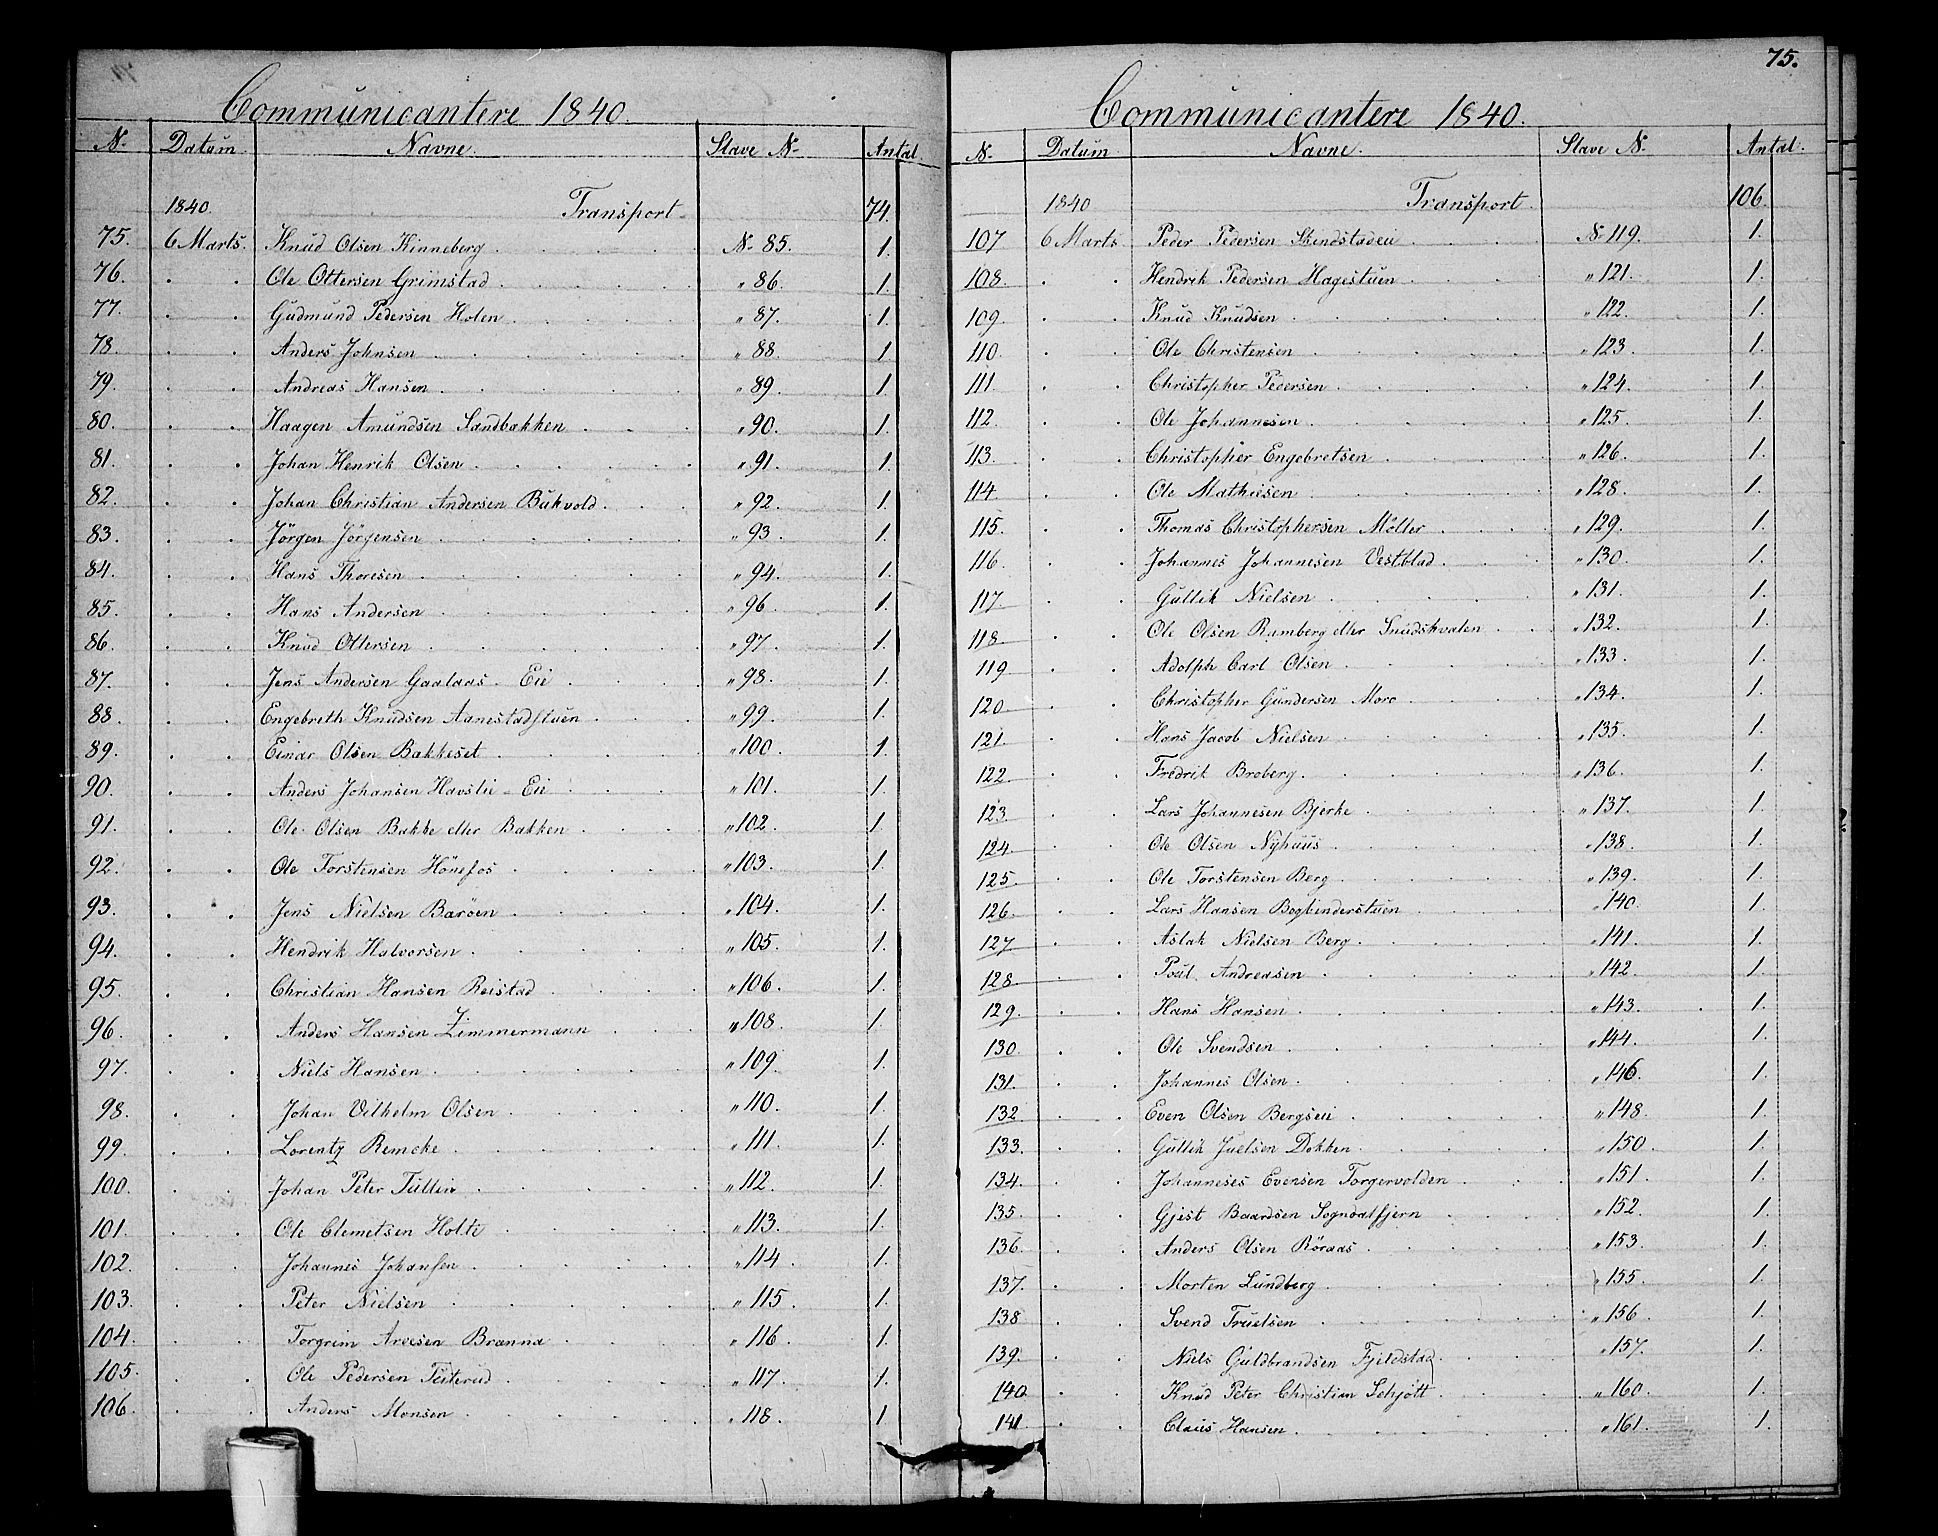 Communicantere 1840.
N. Datum. Navne. Slave N. Antal.
1840. Transport. 74.
75. 6 Marts. Knud Olsen Kinneberg N. 85. 1.
76. Ole Ottersen Grimstad " 86. 1.
77. Gudmund Pedersen Holen " 87. 1.
78. Anders Johnsen " 88. 1.
79. Andreas Hansen " 89. 1.
80. Haagen Amundsen Sandbakken " 90. 1.
81. Johan Henrik Olsen " 91. 1.
82. Johan Christian Andersen Bukvold " 92. 1.
83. Jörgen Jörgensen " 93. 1.
84. Hans Thoresen " 94. 1.
85. Hans Andersen " 96. 1.
86. Knud Ottersen " 97. 1.
87. Jens Andersen Gaalaas-Eie " 98. 1.
88. Engebreth Knudsen Aanestadstuen " 99. 1.
89. Einar Olsen Bakkeset " 100. 1.
90. Anders Johansen Havslie-Eie " 101. 1.
91. Ole Olsen Bakke eller Bakken " 102. 1.
92. Ole Torstensen Hönefos " 103. 1.
93. Jens Nielsen Baröen " 104. 1.
94. Hendrik Halvorsen " 105. 1.
95. Christian Hansen Reistad " 106. 1.
96. Anders Hansen Zimmermann " 108. 1.
97. Niels Hansen " 109. 1.
98. Johan Vilhelm Olsen " 110. 1.
99. Lorentz Remcke " 111. 1.
100. Johan Peter Tullin " 112. 1.
101. Ole Clemetsen Holte " 113. 1.
102. Johannes Johansen " 114. 1.
103. Peter Nielsen " 115. 1.
104. Torgrim Arvesen Brænna " 116. 1.
105. Ole Pedersen Teiterud " 117. 1.
106. Anders Monsen " 118. 1.
75.
Communicantere 1840.
N. Datum Navne. Slave N. Antal.
1840 Transport. 106.
107 6 Marts Peder Pedersen N. 119. 1.
108. Hendrik Pedersen Hagestuen " 121. 1.
109. Knud Knudsen " 122. 1.
110. Ole Christensen " 123. 1.
111. Christopher Pedersen " 124. 1.
112. Ole Johannesen " 125. 1.
113. Christopher Engebretsen " 126. 1.
114. Ole Mathiesen " 128. 1.
115. Thomas Christophersen Möller " 129. 1.
116. Johannes Johannesen Vestblad " 130. 1.
117. Gullik Nielsen " 131. 1.
118. Ole Olsen Ramberg eller Snudskvalen " 132. 1.
119. Adolph Carl Olsen " 133. 1.
120. Christopher Gundersen Moro " 134. 1.
121. Hans Jacob Nielsen " 135. 1.
122. Fredrik Broberg " 136. 1.
123. Lars Johannesen Bjerke " 137. 1.
124. Ole Olsen Nyhuus " 138. 1.
125. Ole Torstensen Berg " 139. 1.
126. Lars Hansen Bogbinderstuen " 140. 1.
127. Aslak Nielsen Berg " 141. 1.
128. Poul Andreasen " 142. 1.
129. Hans Hansen " 143. 1.
130. Ole Svendsen " 144. 1.
131. Johannes Olsen " 146. 1.
132. Even Olsen Bergseie " 148. 1.
133. Gullik Juelsen Dokken " 150. 1.
134. Johanneses Evensen Torgervolden " 151. 1.
135. Gjest Baardsen Sogndalfjern " 152. 1.
136. Anders Olsen Röraas " 153. 1.
137. Morten Lundberg " 155. 1.
138. Svend Truelsen " 156. 1.
139. Niels Guldbrandsen Fjeldstad " 157. 1.
140. Knud Peter Christian Schjött " 160. 1.
141. Claus Hansen " 161. 1.